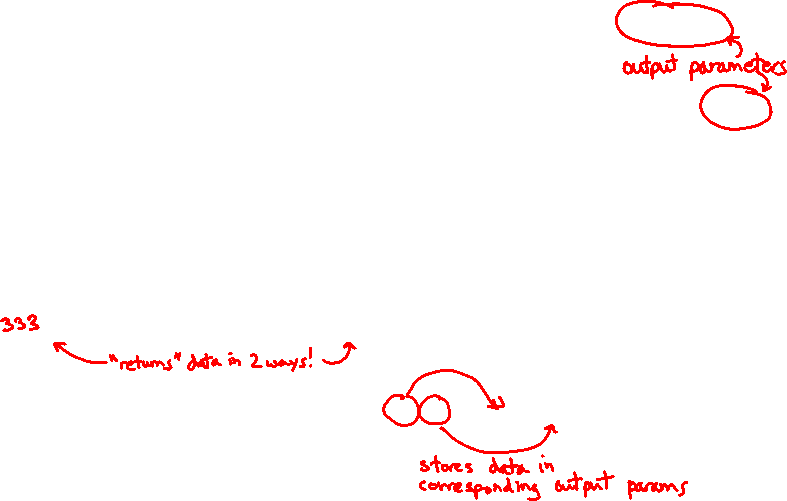 output parameters
333
"returns" data in 2 ways!
stores data in
corresponding output params